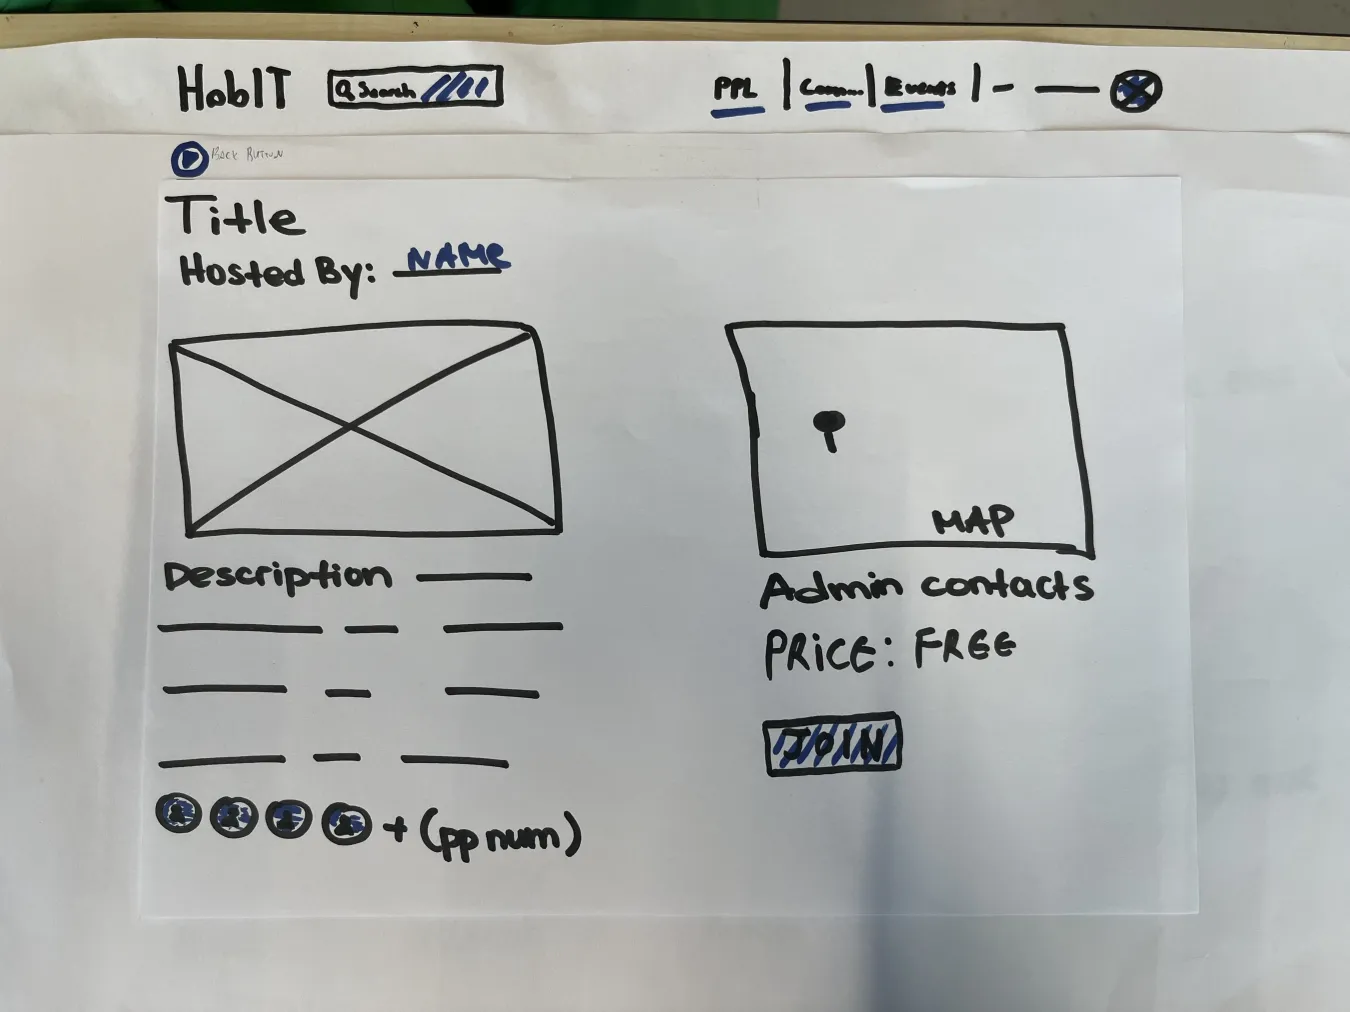 HobIT Search PPL | Comm... | Events |
BACK BUTTON
Title
Hosted By: NAME
MAP
Description
Admin contacts
PRICE: FREE
JOIN
+ (pp num)